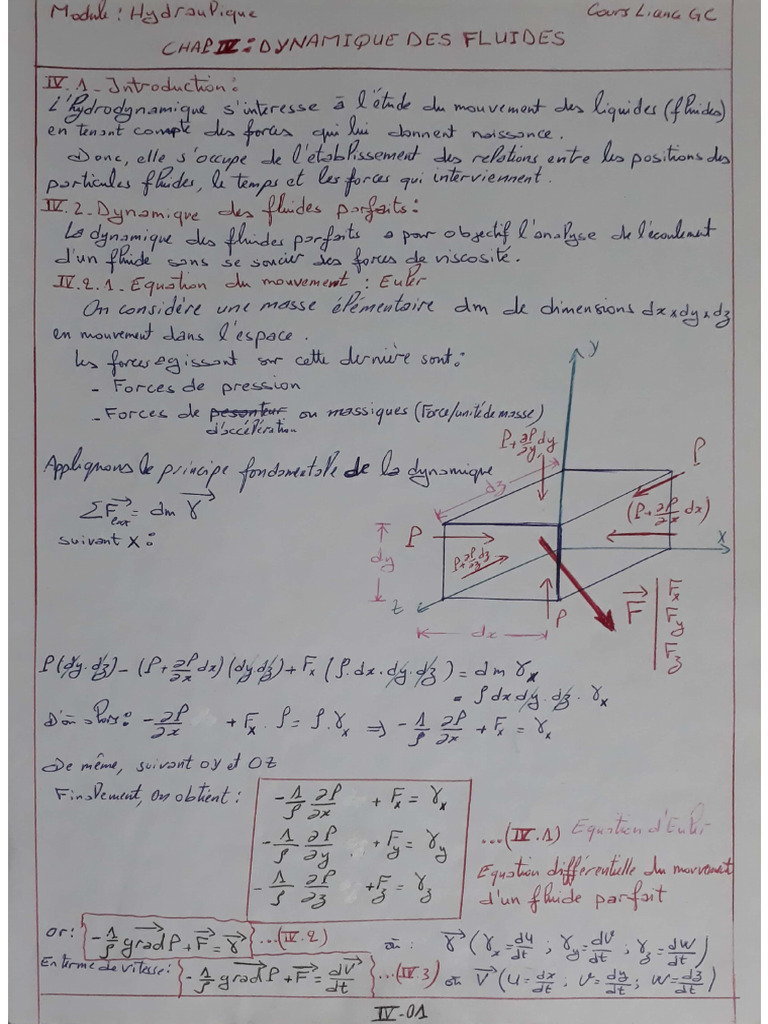 Module: Hydraulique
Cours Licence GC
CHAP IV: DYNAMIQUE DES FLUIDES
IV.1 - Introduction:
L'hydrodynamique s'interesse à l'étude du mouvement des liquides (fluides)
en tenant compte des forces qui lui donnent naissance.
Donc, elle s'occupe de l'établissement des relations entre les positions des
particules fluides, le temps et les forces qui interviennent.
IV.2 - Dynamique des fluides parfaits:
La dynamique des fluides parfaits a pour objectif l'analyse de l'écoulement
d'un fluide sans se soucier des forces de viscosité.
IV.2.1 - Equation du mouvement : Euler
On considère une masse élémentaire dm de dimensions dx×dy×dz
en mouvement dans l'espace.
Les forces agissant sur cette dernière sont:
- Forces de pression
- Forces de pesanteur ou massiques (Force/unité de masse)
d'accélération
Appliquons le principe fondamentale de la dynamique
ΣF⃗ext = dm γ⃗
suivant X:
y
P+∂P/∂y dy
P
dz
(P+∂P/∂x dx)
P
P+∂P/∂z dz
x
dy
z
P
dx
F⃗ | Fx
Fy
Fz
P(dy.dz) - (P+∂P/∂x dx)(dy.dz) + Fx (ρ.dx.dy.dz) = dm γx
= ρ dx dy.dz. γx
D'où alors: -∂P/∂x + Fx.ρ = ρ.γx ⇒ -1/ρ ∂P/∂x + Fx = γx
De même, suivant OY et OZ
Finalement, on obtient:
-1/ρ ∂P/∂x + Fx = γx
-1/ρ ∂P/∂y + Fy = γy
-1/ρ ∂P/∂z + Fz = γz
...(IV.1) Equation d'Euler
Equation différentielle du mouvement
d'un fluide parfait
or: -1/ρ grad⃗ P + F⃗ = γ⃗ ...(IV.2) où: γ⃗ (γx = du/dt ; γy = dv/dt ; γz = dw/dt)
En terme de vitesse: -1/ρ grad⃗ P + F⃗ = dV⃗/dt ...(IV.3) où V⃗ (u = dx/dt ; v = dy/dt ; w = dz/dt)
IV-01